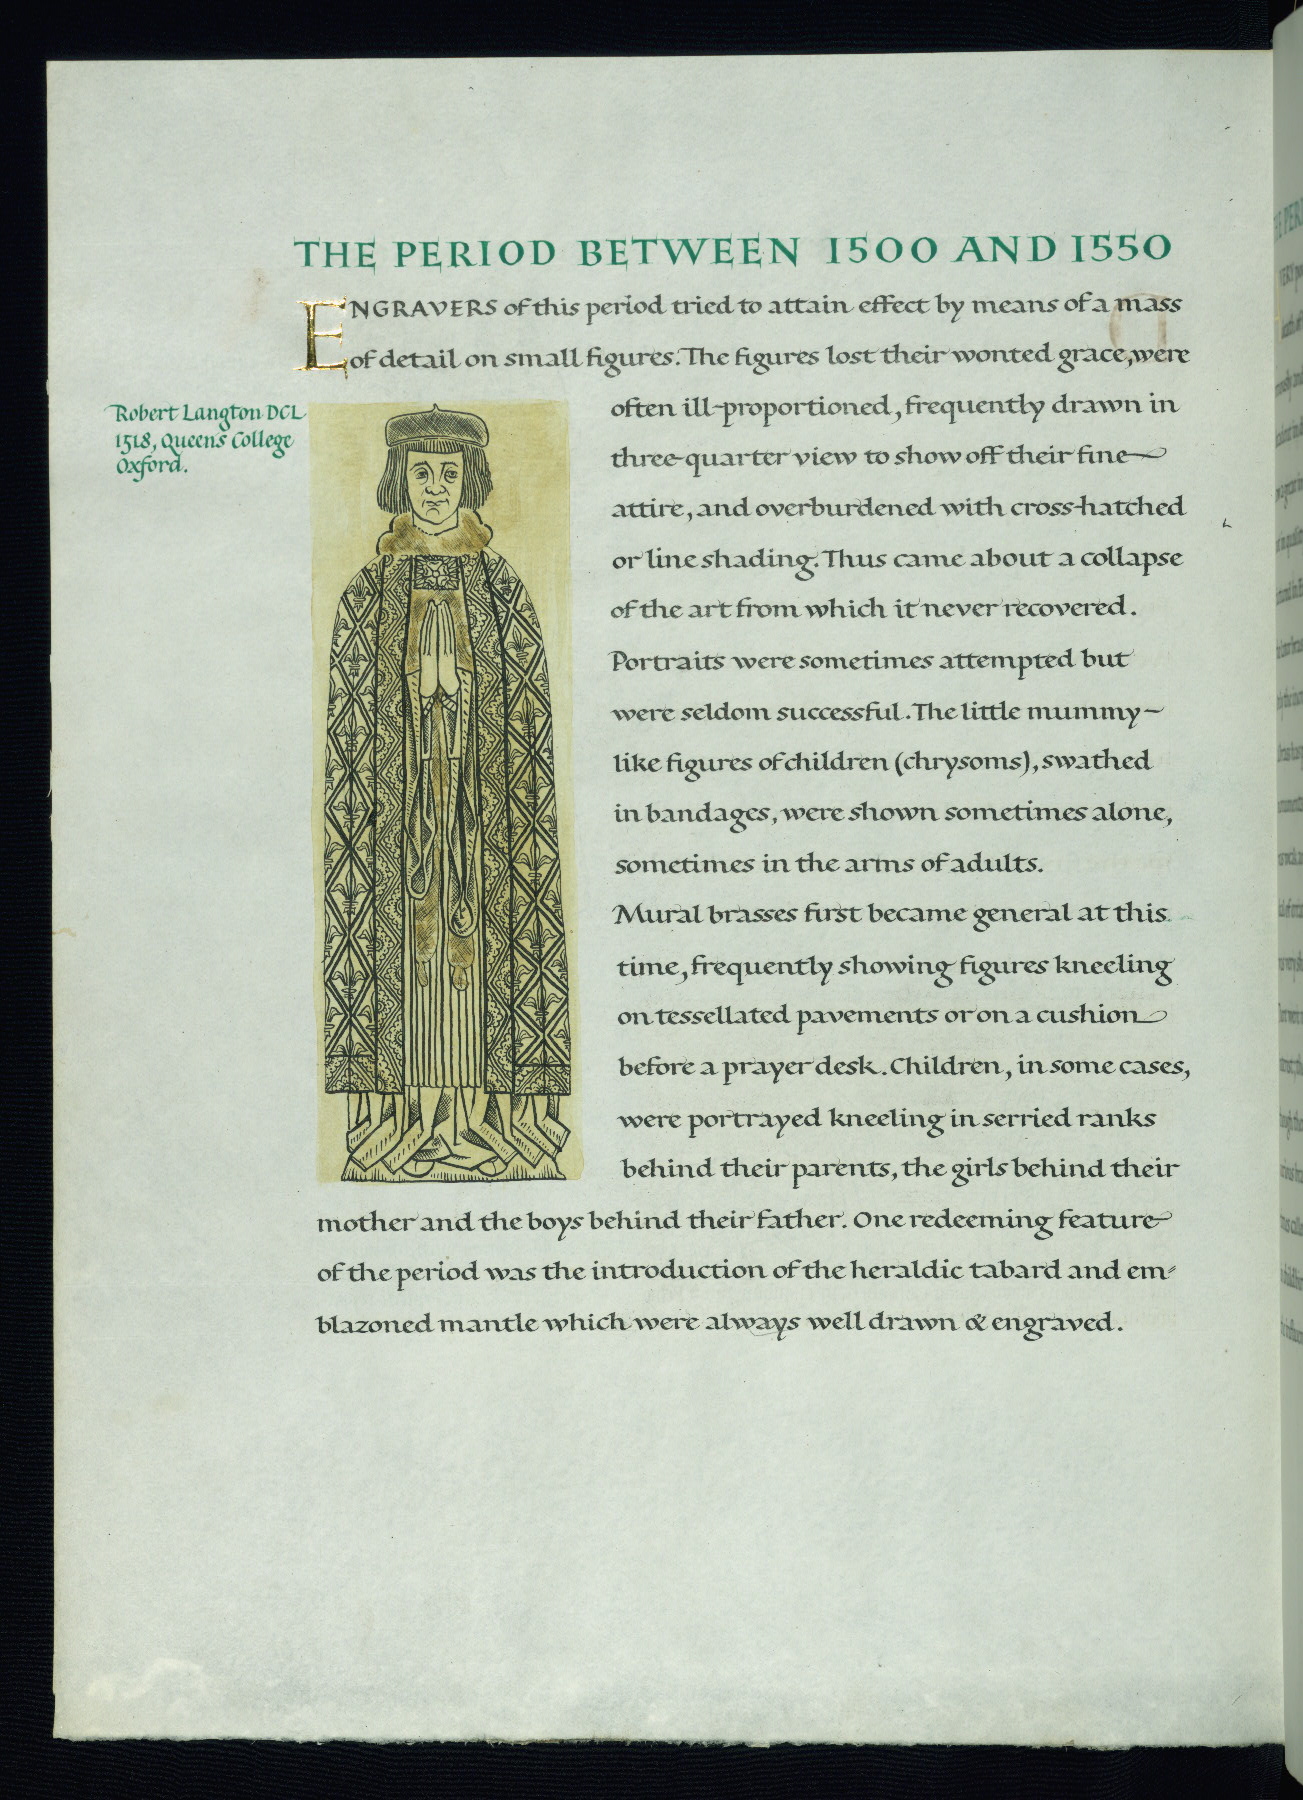 THE PERIOD BETWEEN 1500 AND 1550
ENGRAVERS of this period tried to attain effect by means of a mass
of detail on small figures. The figures lost their wonted grace, were
Robert Langton DCL
1518, Queens College
Oxford.
often ill-proportioned, frequently drawn in
three-quarter view to show off their fine
attire, and overburdened with cross-hatched
or line shading. Thus came about a collapse
of the art from which it never recovered.
Portraits were sometimes attempted but
were seldom successful. The little mummy-
like figures of children (chrysoms), swathed
in bandages, were shown sometimes alone,
sometimes in the arms of adults.
Mural brasses first became general at this
time, frequently showing figures kneeling
on tessellated pavements or on a cushion
before a prayer desk. Children, in some cases,
were portrayed kneeling in serried ranks
behind their parents, the girls behind their
mother and the boys behind their father. One redeeming feature
of the period was the introduction of the heraldic tabard and em-
blazoned mantle which were always well drawn & engraved.